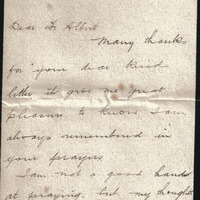 Dear Fr Albert
Many thanks
for your dear kind
letter it give me great
pleasure to know I am
always remembered in
your prayers
I am not a good hand
at praying, but my thoughts